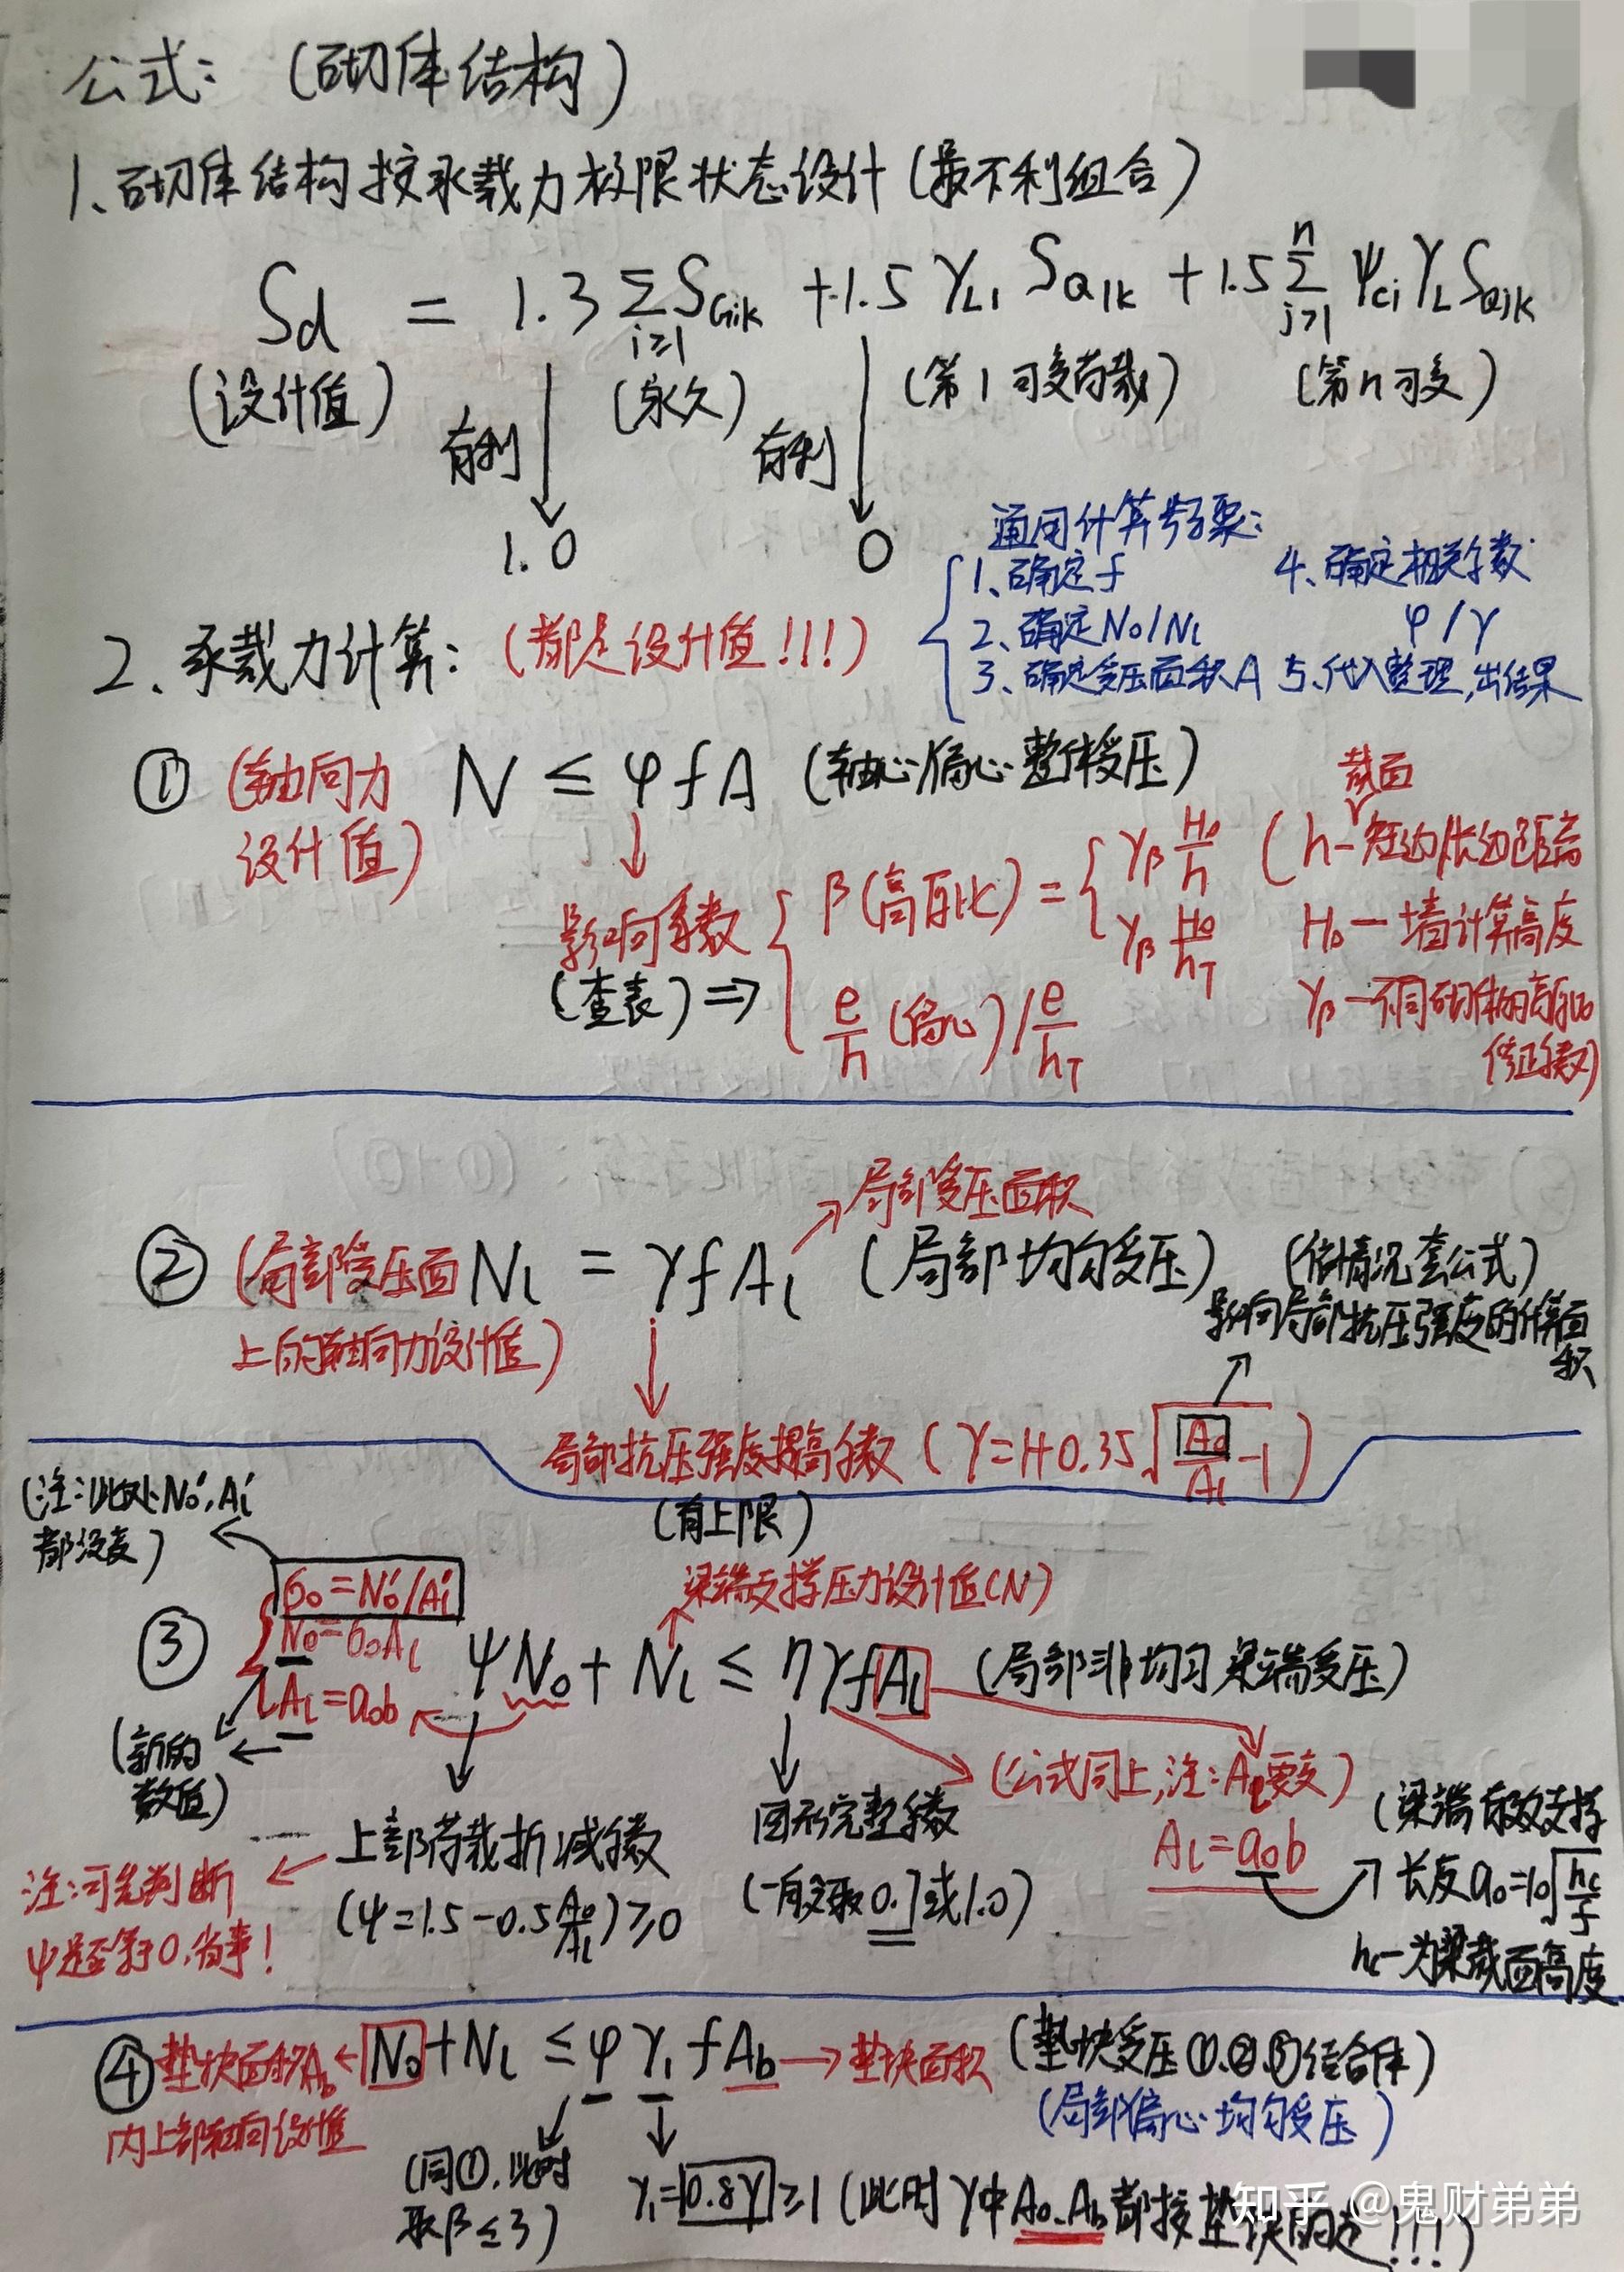 公式：（砌体结构）
1、砌体结构按承载力极限状态设计（最不利组合）
Sd = 1.3 ∑ SGik + 1.5 γL1 SQ1k + 1.5 ∑ ψci γL SQjk
i≥1
n
j>1
（设计值）
（永久）
（第1可变荷载）
（第n可变）
有利
1.0
有利
0
通用计算步骤：
1、确定f
2、确定N0/Nl
3、确定受压面积A
4、确定相关系数
φ/γ
5、代入整理,出结果
2、承载力计算：（都是设计值!!!）
① （轴向力设计值） N ≤ φfA （轴心/偏心整体受压）
影响系数
（查表）⇒
β（高厚比）= { γβ H0/h
γβ H0/hT
e/h（偏心）/ e/hT
截面
（h—短边/长边距离
H0—墙计算高度
γβ—不同砌体的高厚比
修正系数）
② （局部受压面
上的轴向力设计值）
Nl = γfAl （局部均匀受压）
局部受压面积
（依情况套公式）
影响局部抗压强度的计算面
积
局部抗压强度提高系数（γ=1+0.35√(A0/Al -1)）
（有上限）
（注：此处N0',Al'
都没变）
σ0=N0'/Al'
N0=σ0Al
Al=a0b
（新的
数值）
梁端支撑压力设计值（N）
③ ψN0+Nl ≤ ηγfAl （局部非均匀 梁端受压）
上部荷载折减系数
（ψ=1.5-0.5 A0/Al）≥0
注：可先判断
ψ是否等于0,省事！
图形完整系数
（一般取0.7或1.0）
（公式同上,注：Al要变）
Al=a0b
（梁端有效支撑
长度a0=10√(hc/f)
hc—为梁截面高度
④ 垫块面积Ab
内上部轴向设计值
N0+Nl ≤ φγ1fAb → 垫块面积
（垫块受压①、②、③结合体）
（局部偏心 均匀受压）
（同①,此时
取β≤3）
γ1=0.8γ≥1（此时γ中A0、Ab都按垫块的走!!!）
知乎 @鬼财弟弟